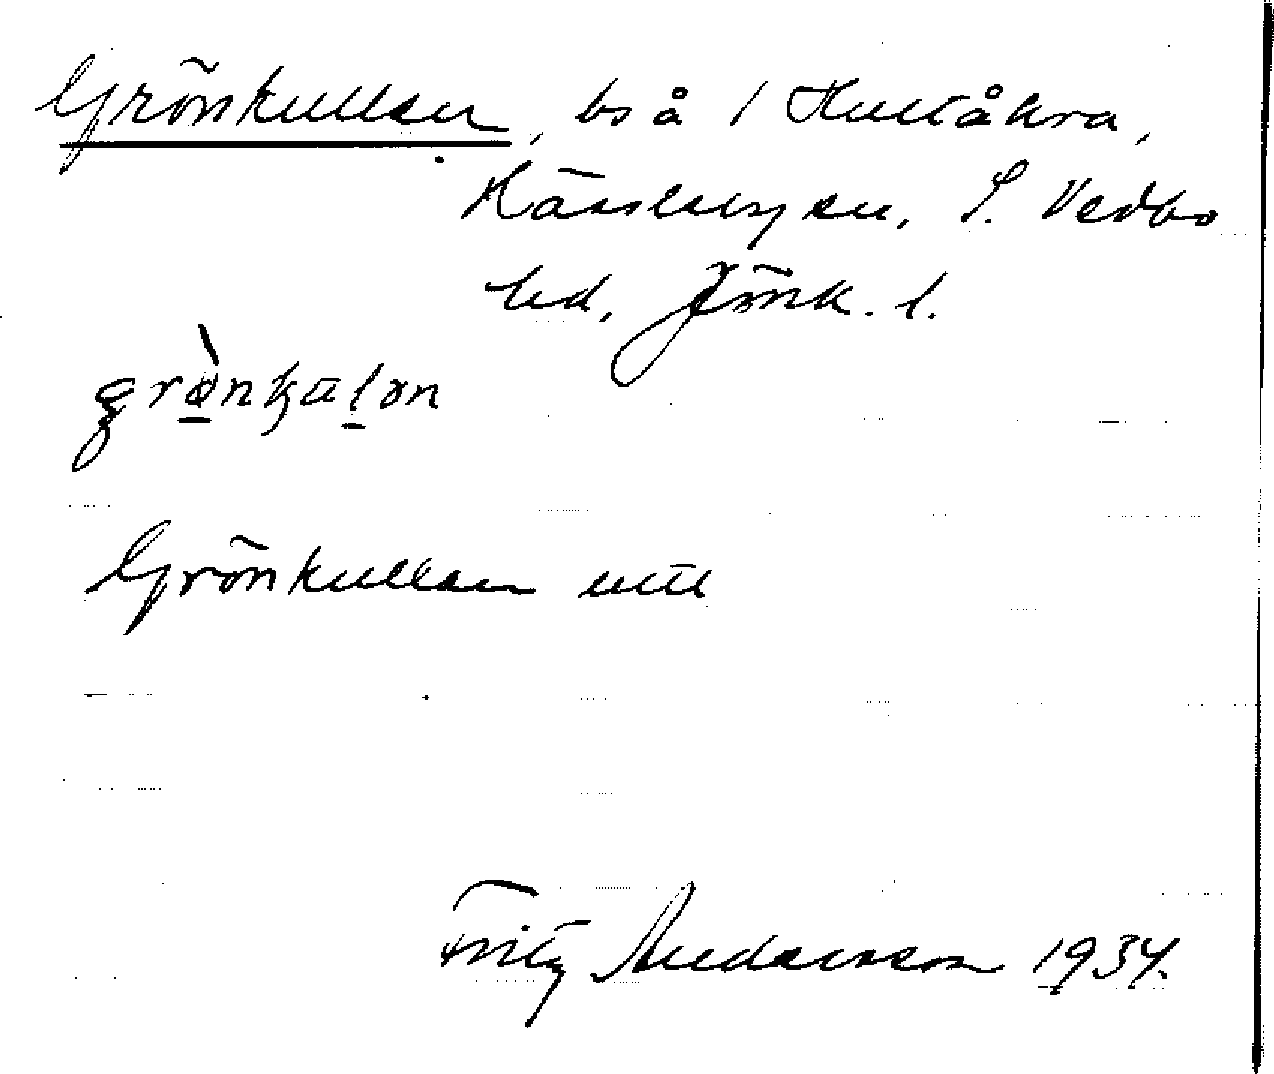 Grönkullen, bs å 1 Hultåkra,
Hässleryen, S. Vedbo
hd, Jönk. l.
grø̀nkulən
Grönkullen utt
Fritz Andersson 1934.